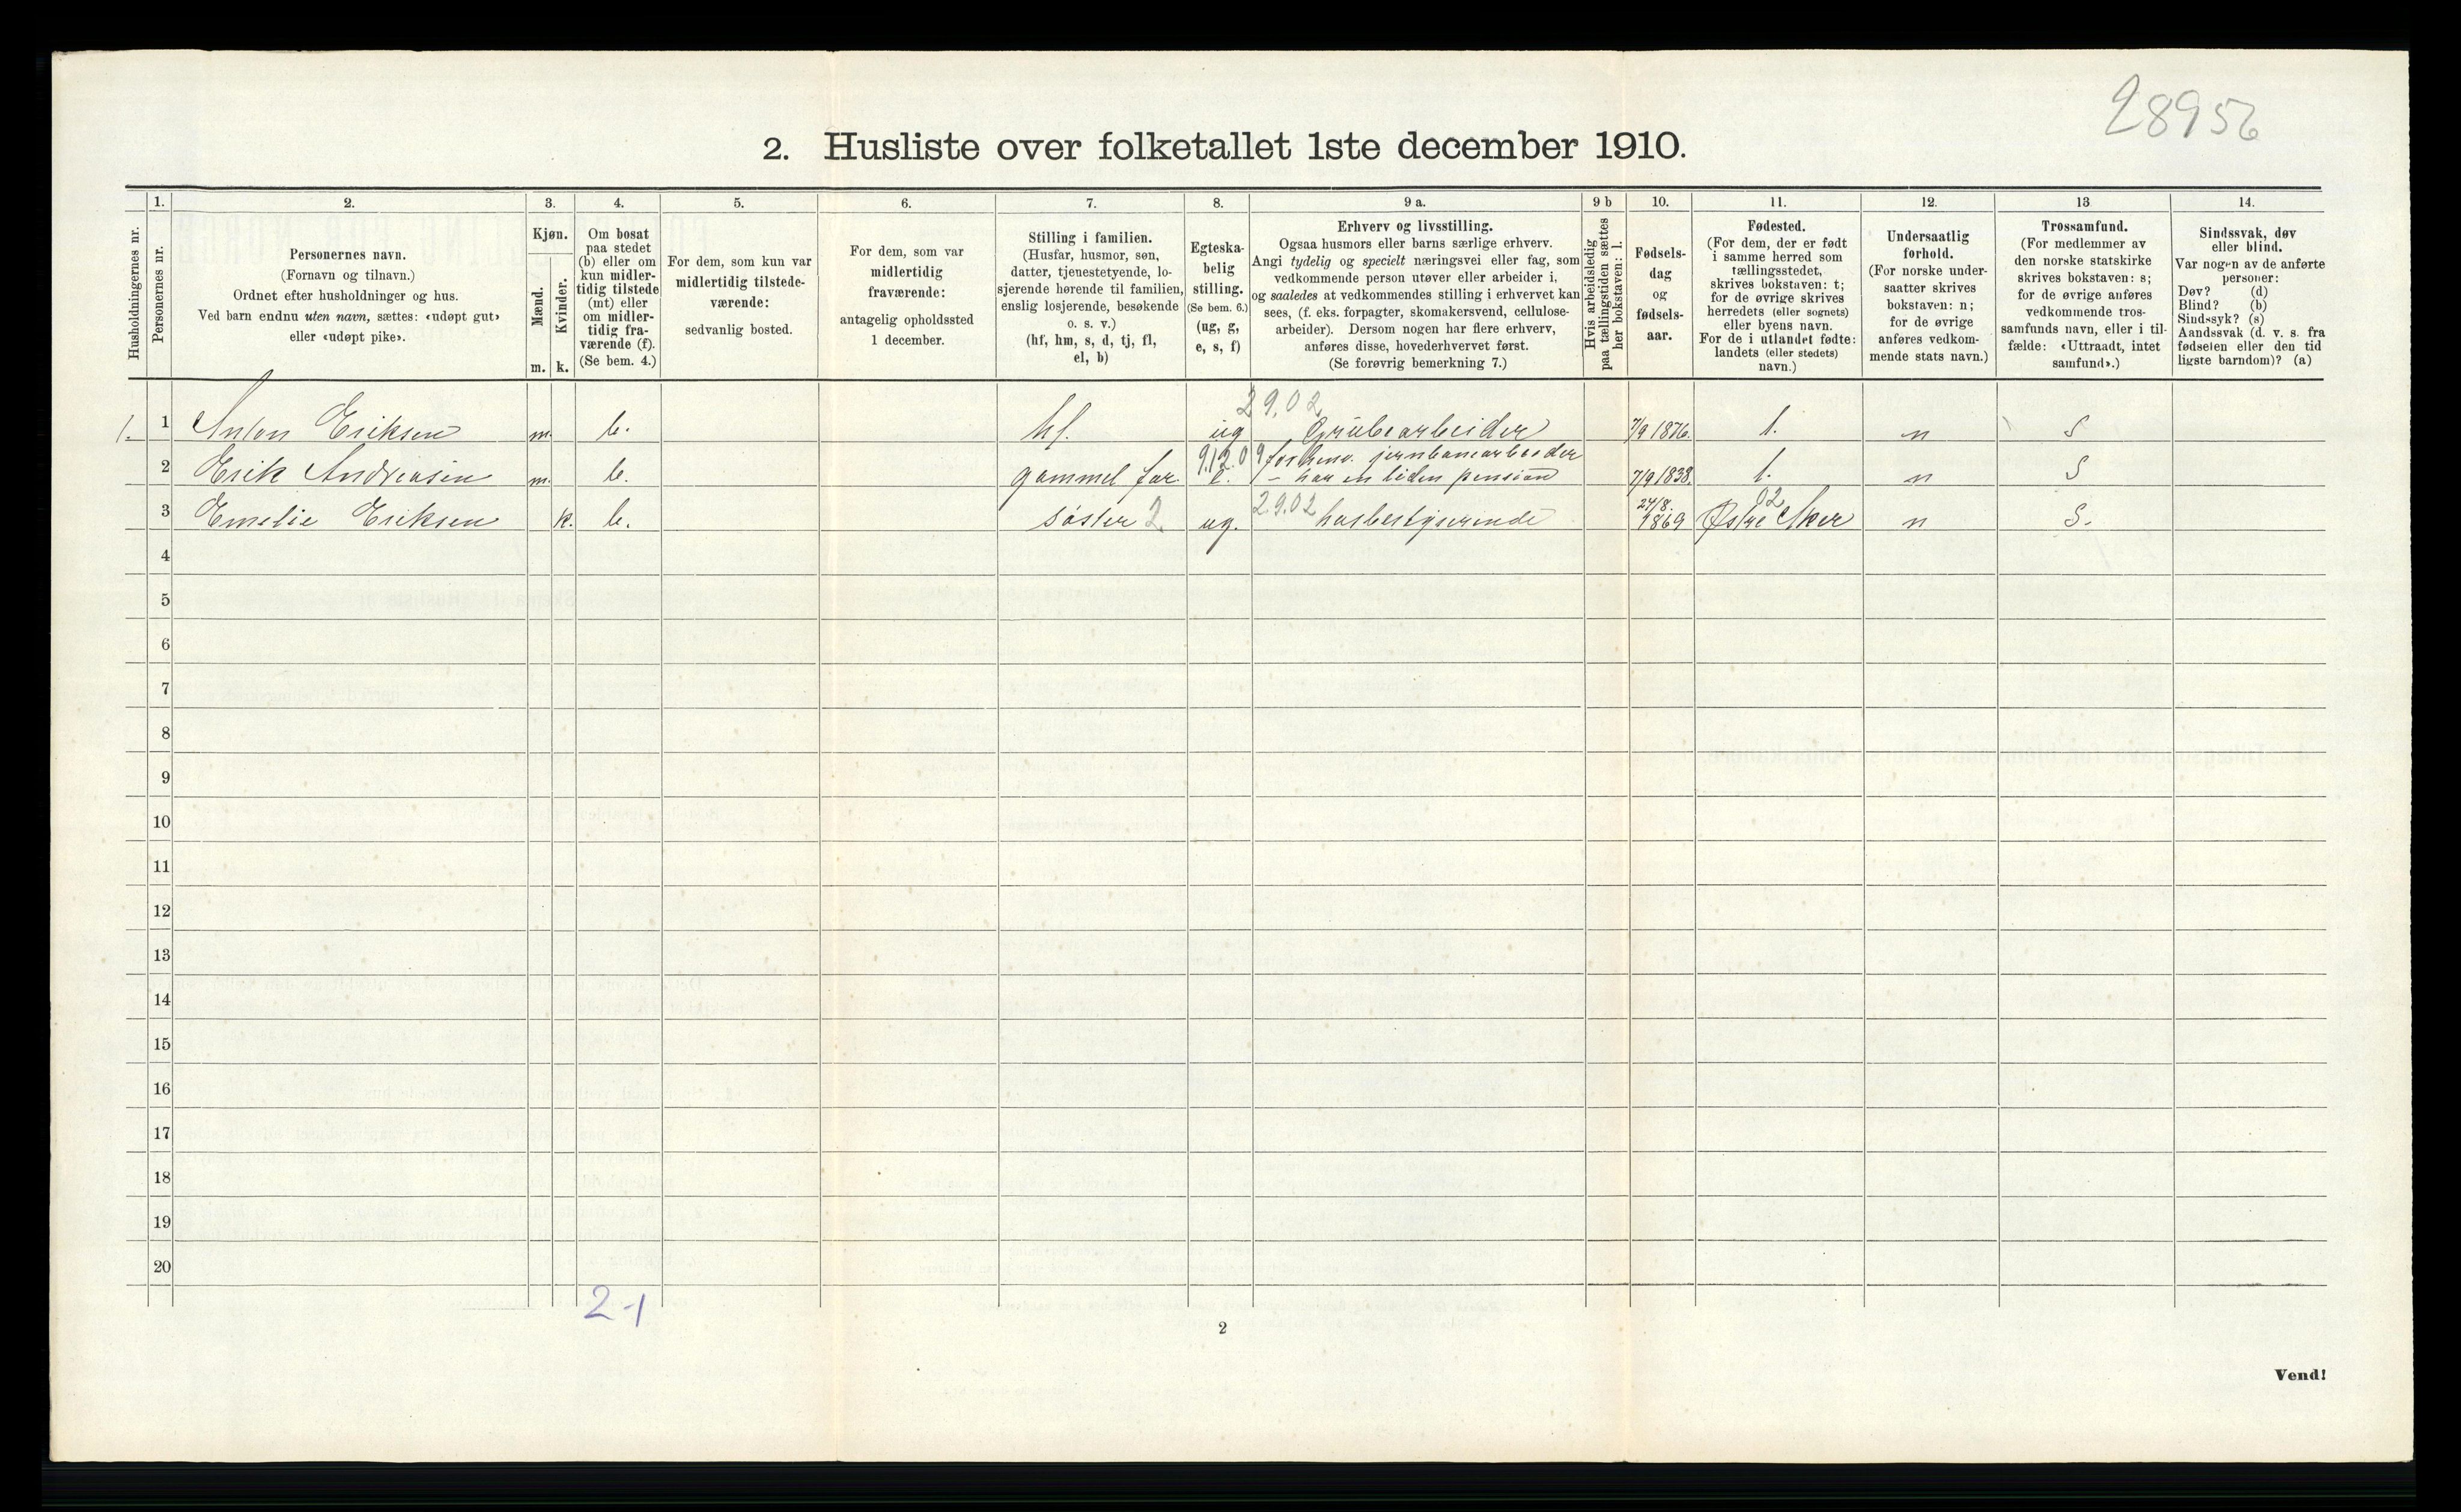 28956
2. Husliste over folketallet 1ste december 1910.
Husholdningernes nr.
1.
Personernes nr.
2.
Personernes navn.
(Fornavn og tilnavn.)
Ordnet efter husholdninger og hus.
Ved barn endnu uten navn, sættes: «udøpt gut»
eller «udøpt pike».
3.
Kjøn.
Mænd.
Kvinder.
m. k.
4.
Om bosat
paa stedet
(b) eller om
kun midler-
tidig tilstede
(mt) eller
om midler-
tidig fra-
værende (f).
(Se bem. 4.)
5.
For dem, som kun var
midlertidig tilstede-
værende:
sedvanlig bosted.
6.
For dem, som var
midlertidig
fraværende:
antagelig opholdssted
1 december.
7.
Stilling i familien.
(Husfar, husmor, søn,
datter, tjenestetyende, lo-
sjerende hørende til familien,
enslig losjerende, besøkende
o. s. v.)
(hf, hm, s, d, tj, fl,
el, b)
8.
Egteska-
belig
stilling.
(Se bem. 6.)
(ug, g,
e, s, f)
9 a.
Erhverv og livsstilling.
Ogsaa husmors eller barns særlige erhverv.
Angi tydelig og specielt næringsvei eller fag, som
vedkommende person utøver eller arbeider i,
og saaledes at vedkommendes stilling i erhvervet kan
sees, (f. eks. forpagter, skomakersvend, cellulose-
arbeider). Dersom nogen har flere erhverv,
anføres disse, hovederhvervet først.
(Se forøvrig bemerkning 7.)
9 b
Hvis arbeidsledig
paa tællingstiden sættes
her bokstaven: l.
10.
Fødsels-
dag
og
fødsels-
aar.
11.
Fødested.
(For dem, der er født
i samme herred som
tællingsstedet,
skrives bokstaven: t;
for de øvrige skrives
herredets (eller sognets)
eller byens navn.
For de i utlandet fødte:
landets (eller stedets)
navn.)
12.
Undersaatlig
forhold.
(For norske under-
saatter skrives
bokstaven: n;
for de øvrige
anføres vedkom-
mende stats navn.)
13
Trossamfund.
(For medlemmer av
den norske statskirke
skrives bokstaven: s;
for de øvrige anføres
vedkommende tros-
samfunds navn, eller i til-
fælde: «Uttraadt, intet
samfund».)
14.
Sindssvak, døv
eller blind.
Var nogen av de anførte
personer:
Døv? (d)
Blind? (b)
Sindssyk? (s)
Aandssvak (d. v. s. fra
fødselen eller den tid
ligste barndom)? (a)
29.02
1. 1 Anton Eriksen m. b. hf. ug Grubearbeider 7/9 1876. t. n S
9.12.09 forhenv. jernbanearbeider
2 Erik Andreasen m. b. gammel far e. - har en liden pension 7/9 1838. t. n S
3 Emelie Eriksen k. b. søster 2 ug. 29.02 husbestyrerinde 24/8. 1869 Østre Aker 02 n S.
4
5
6
7
8
9
10
11
12
13
14
15
16
17
18
19
20
2-1
2
Vend!